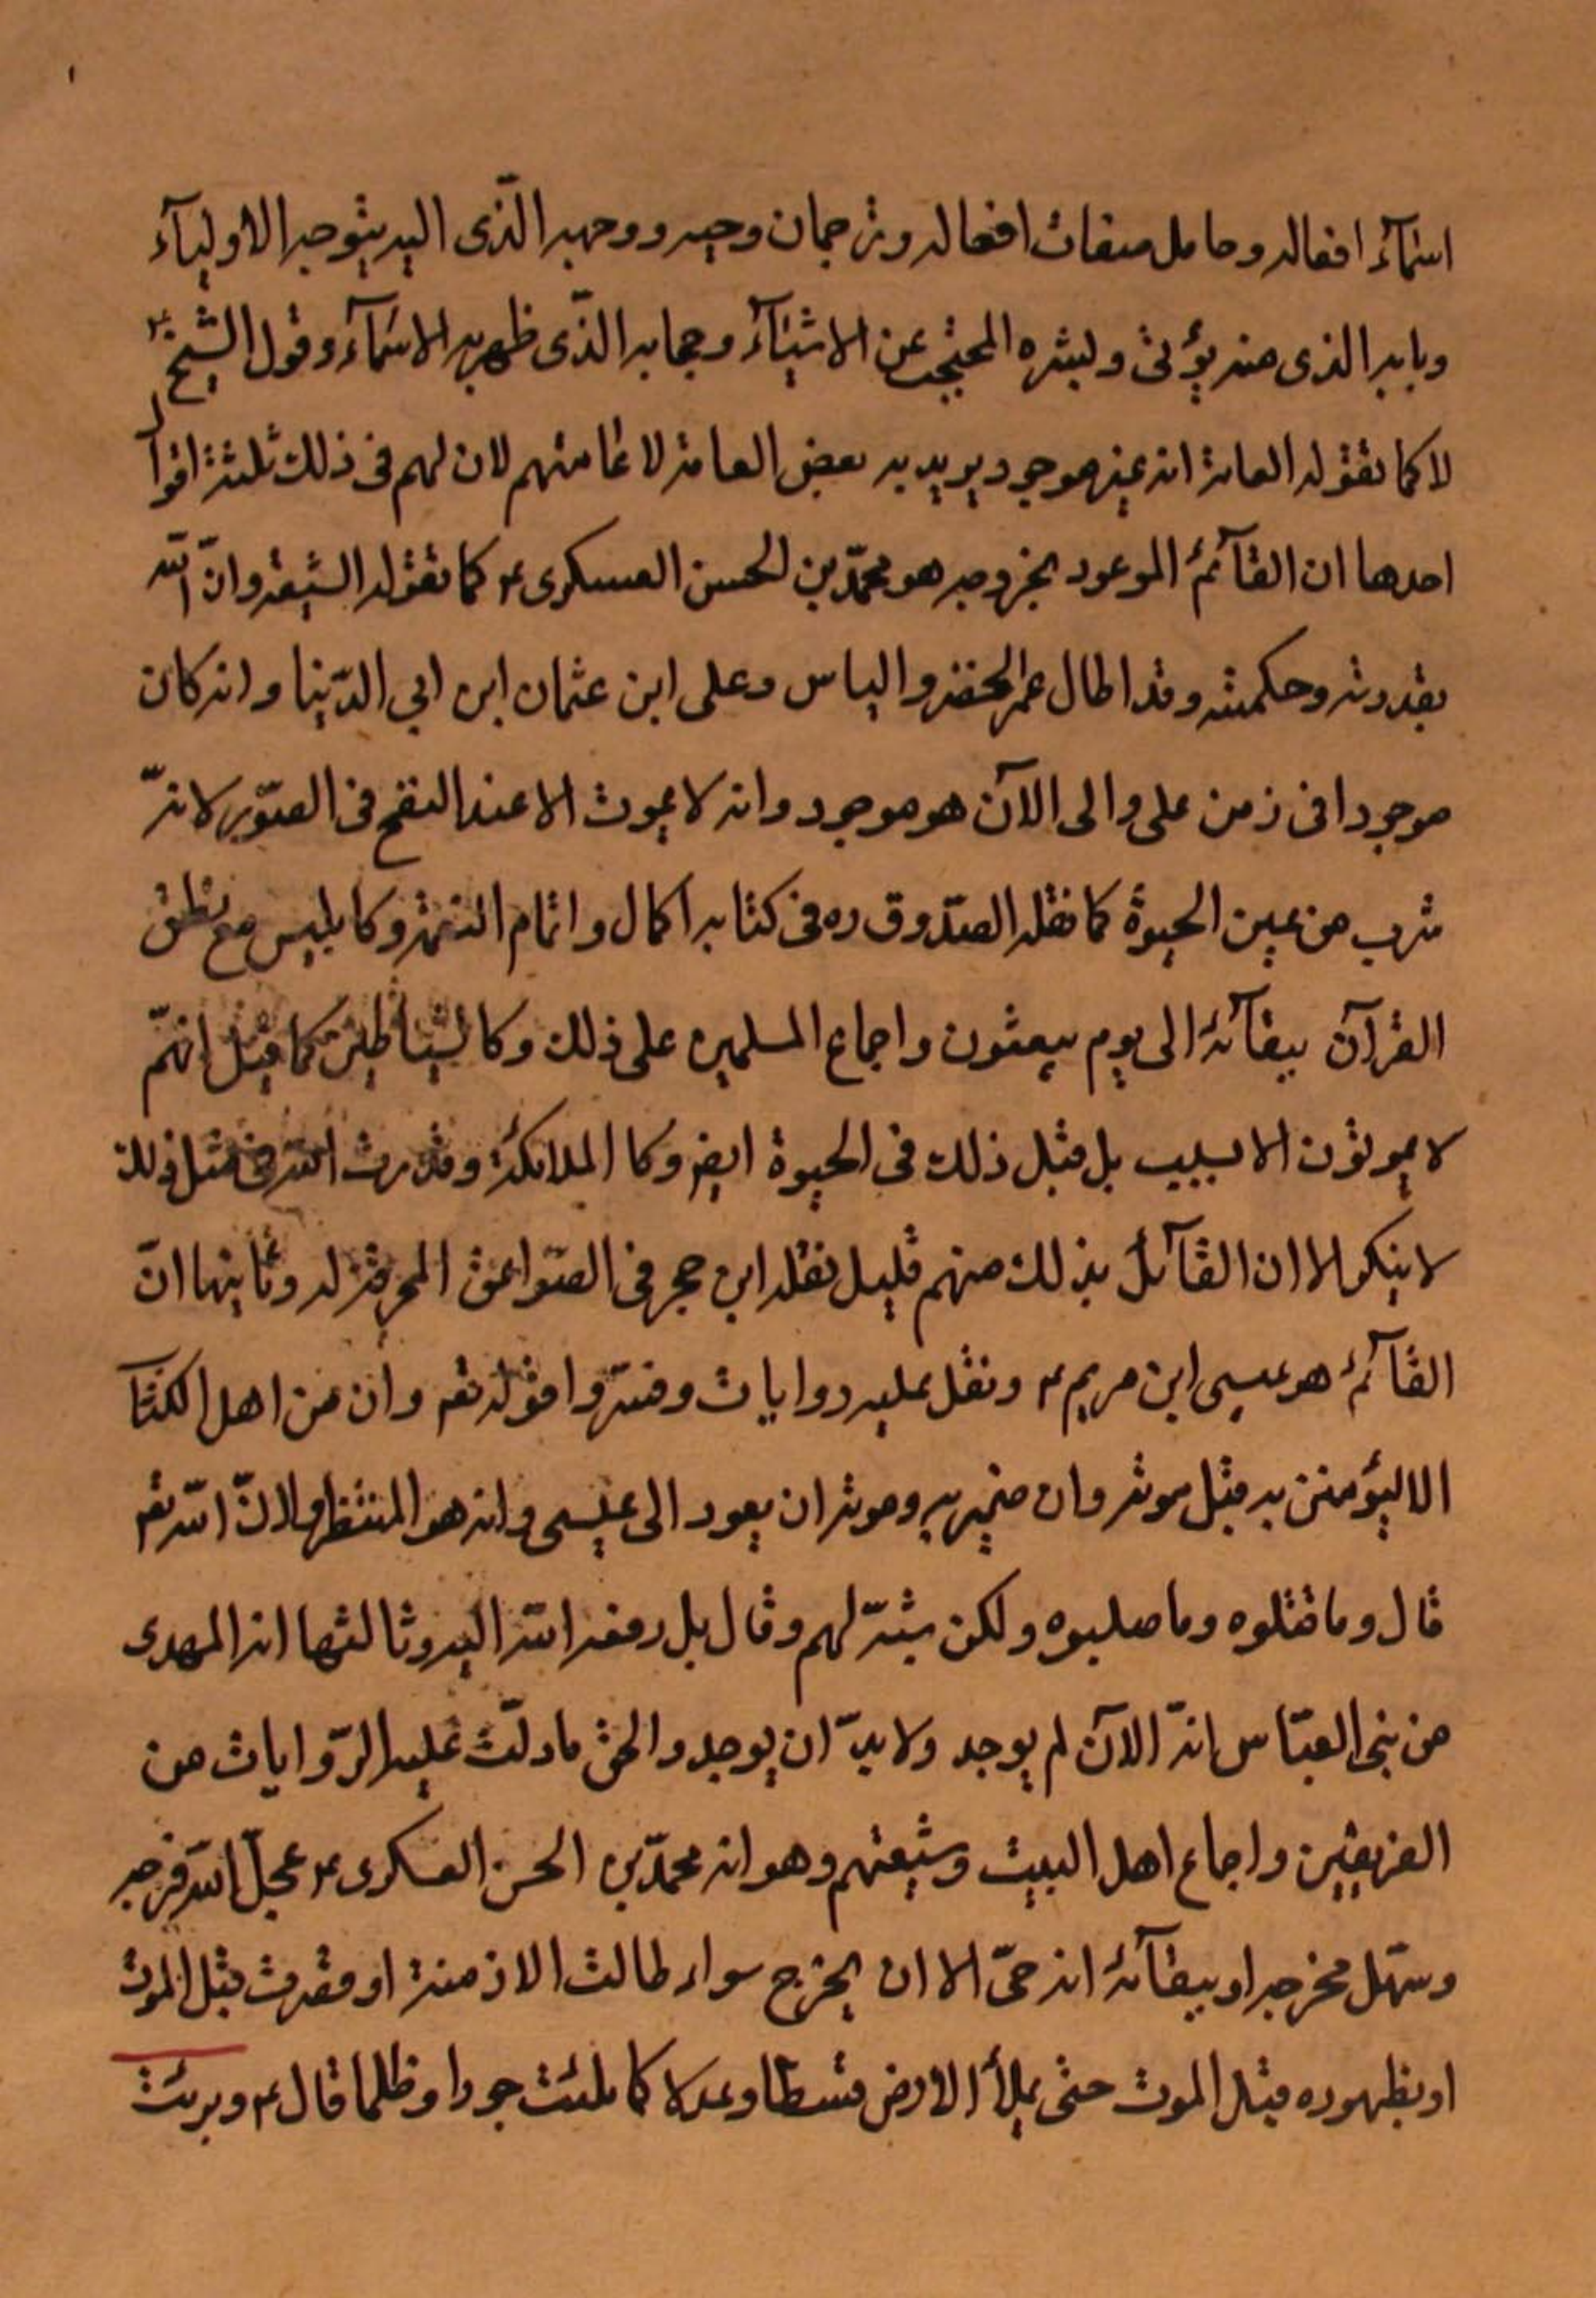 اسمآء افعاله وحامل صفات افعاله وترجمان وحيه ووجهه الذّى اليه يتوجه الاوليآء
وبابه الذى منه يؤتى وليثره المحتجب عن الاشيآء وحجابه الذّى ظهر به الاسمآء وقول الشّيخ ره
لا كما تقوله العامة انه غير موجود يريد به بعض العامة لا عامتهم لان لهم فى ذلك ثلثة اقوال
احدها ان القآئم الموعود بخروجه هو محمّد بن الحسن العسكرى ع كما تقوله الشيعة وانّ اللّه
بقدرته وحكمته وقد اطال عمر الخضر والياس وعلى ابن عثمان ابن ابي الدّينا وانه كان
موجودا فى زمن على والى الآن هو موجود وانه لا يموت الا عند النفخ فى الصّور لانّه
شرب من عين الحيوة كما نقله الصّدوق ره فى كتابه اكمال واتمام النعمة وكابليس مع نطق
القرآن ببقآئه الى يوم يبعثون واجماع المسلمين على ذلك وكالشياطين كما قيل انهّم
لا يموتون الا بسبب بل قيل ذلك فى الحيوة ايضا وكا الملائكة وقدرت اللّه فى مثل ذلك
لا ينكر الا ان القآئل بذلك منهم قليل نقله ابن حجر فى الصّواعق المحرقة له وثانيها انّ
القآئم هو عيسى ابن مريم ع ونقل عليه روايات وفسّروا قوله تع وان من اهل الكتآ
الا ليؤمنن به قبل موته وان ضمير به وموته ان يعود الى عيسى وانه هو المنتظر ولانّ اللّه تع
قال وما قتلوه وما صلبوه ولكن شبّه لهم وقال بل رفعه اللّه اليه وثالثها انه المهدى
من بنى العبّاس انّه الآن لم يوجد ولا بدّ ان يوجد والحق ما دلّت عليه الرّوايات من
الفريقين واجماع اهل البيت وشيعتهم وهو انه محمّد بن الحسن العسكرى ع عجلّ اللّه فرجه
وسهّل مخرجه او ببقآئه انه حىّ الا ان يخرج سواء طالت الازمنة او قصرت قبل الموت
او بظهوره قبل الموت حتى يملأ الارض قسطا وعدلا كما ملئت جورا وظلما قال ع وبرئت